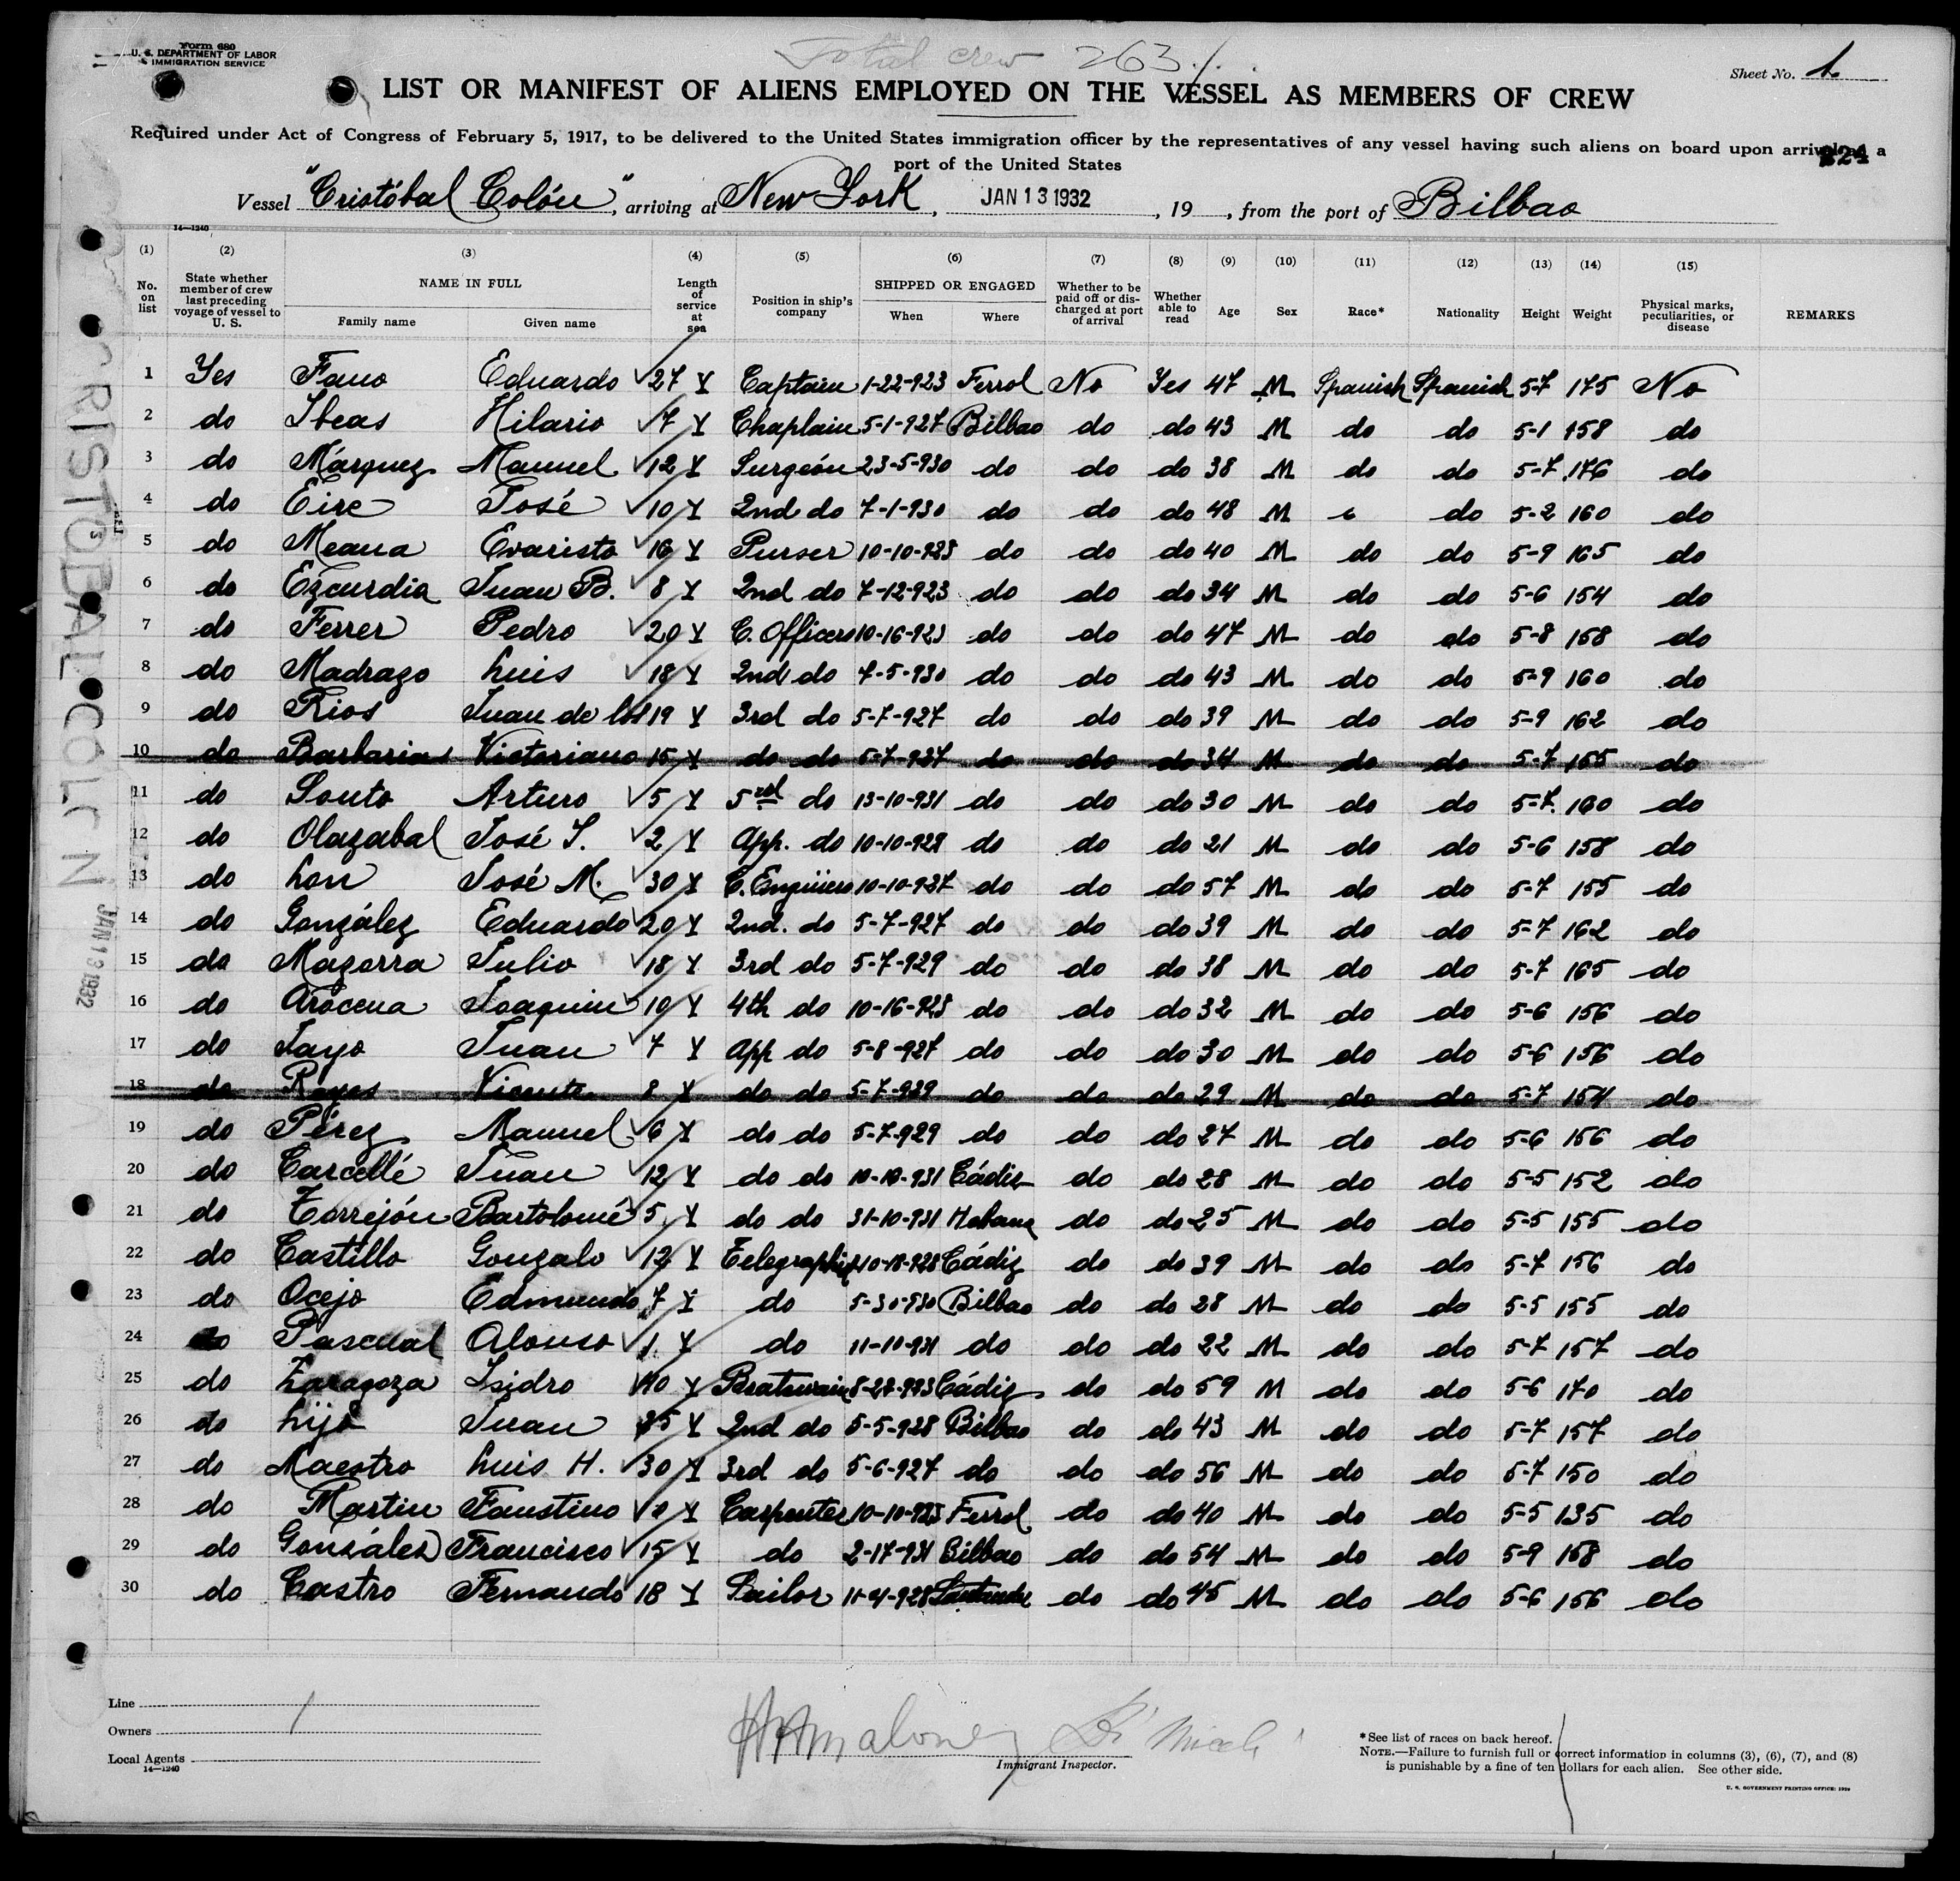 Form 680
U. S. DEPARTMENT OF LABOR
IMMIGRATION SERVICE
Total crew 263
Sheet No. 1
LIST OR MANIFEST OF ALIENS EMPLOYED ON THE VESSEL AS MEMBERS OF CREW
Required under Act of Congress of February 5, 1917, to be delivered to the United States immigration officer by the representatives of any vessel having such aliens on board upon arrival at a
port of the United States
224
Vessel "Cristóbal Colón", arriving at New York, JAN 13 1932, 19 , from the port of Bilbao
14—1240
(1) (2) (3) (4) (5) (6) (7) (8) (9) (10) (11) (12) (13) (14) (15)
No. on list State whether member of crew last preceding voyage of vessel to U. S. NAME IN FULL Family name Given name Length of service at sea Position in ship's company SHIPPED OR ENGAGED When Where Whether to be paid off or discharged at port of arrival Whether able to read Age Sex Race* Nationality Height Weight Physical marks, peculiarities, or disease REMARKS
1 Yes Fano Eduardo 27 Y Captain 1-22-923 Ferrol No Yes 47 M Spanish Spanish 5-7 175 No
2 do Ibeas Hilario 7 Y Chaplain 5-1-927 Bilbao do do 43 M do do 5-1 158 do
3 do Márquez Manuel 12 Y Surgeón 23-5-930 do do do 38 M do do 5-7 176 do
4 do Eire José 10 Y 2nd do 7-1-930 do do do 48 M do 5-2 160 do
5 do Meana Evaristo 16 Y Purser 10-10-923 do do do 40 M do do 5-9 165 do
6 do Ezcurdia Juan B. 8 Y 2nd do 7-12-923 do do do 34 M do do 5-6 154 do
7 do Ferrer Pedro 20 Y C. Officers 10-16-923 do do do 47 M do do 5-8 158 do
8 do Madrazo Luis 18 Y 2nd do 7-5-930 do do do 43 M do do 5-9 160 do
9 do Rios Juan de los 19 Y 3rd do 5-7-927 do do do 39 M do do 5-9 162 do
10 do Barbarias Victoriano 15 Y do do 5-7-927 do do do 34 M do do 5-7 155 do
11 do Souto Arturo 5 Y 5rd do 13-10-931 do do do 30 M do do 5-7 160 do
12 do Olazabal José I. 2 Y App. do 10-10-929 do do do 21 M do do 5-6 158 do
13 do Lon José M. 30 Y C. Engiiers 10-10-927 do do do 57 M do do 5-7 155 do
14 do González Eduardo 20 Y 2nd. do 5-7-927 do do do 39 M do do 5-7 162 do
15 do Mazorra Julio 18 Y 3rd do 5-7-929 do do do 38 M do do 5-7 165 do
16 do Arocena Joaquin 10 Y 4th do 10-16-923 do do do 32 M do do 5-6 156 do
17 do Jayo Juan 7 Y App do 5-8-927 do do do 30 M do do 5-6 156 do
18 do Reyes Vicente 8 Y do do 5-7-929 do do do 29 M do do 5-7 154 do
19 do Pérez Manuel 6 Y do do 5-7-929 do do do 27 M do do 5-6 156 do
20 do Carcellé Juan 12 Y do do 10-10-931 Cádiz do do 28 M do do 5-5 152 do
21 do Torrejón Bartolomé 5 Y do do 31-10-931 Habana do do 25 M do do 5-5 155 do
22 do Castillo Gonzalo 12 Y Telegraphist 10-18-928 Cádiz do do 39 M do do 5-7 156 do
23 do Ocejo Edmundo 7 Y do 5-30-930 Bilbao do do 28 M do do 5-5 155 do
24 do Pascual Alonso 1 Y do 11-10-931 do do do 22 M do do 5-7 157 do
25 do Zaragoza Isidro 40 Y Boatswain 8-27-923 Cádiz do do 59 M do do 5-6 170 do
26 do Lijó Juan 25 Y 2nd do 5-5-928 Bilbao do do 43 M do do 5-7 157 do
27 do Maestro Luis H. 30 Y 3rd do 5-6-927 do do do 56 M do do 5-7 150 do
28 do Martin Faustino Y Carpenter 10-10-923 Ferrol do do 40 M do do 5-5 135 do
29 do Gonzáles Francisco 15 Y do 2-17-931 Bilbao do do 54 M do do 5-9 158 do
30 do Castro Fernando 18 Y Sailor 11-4-928 Santander do do 45 M do do 5-6 156 do
CRISTOBAL COLON
JAN 13 1932
Line
Owners
Local Agents
14—1240
HAMaloney
Immigrant Inspector.
*See list of races on back hereof.
NOTE.—Failure to furnish full or correct information in columns (3), (6), (7), and (8)
is punishable by a fine of ten dollars for each alien. See other side.
U. S. GOVERNMENT PRINTING OFFICE: 1929